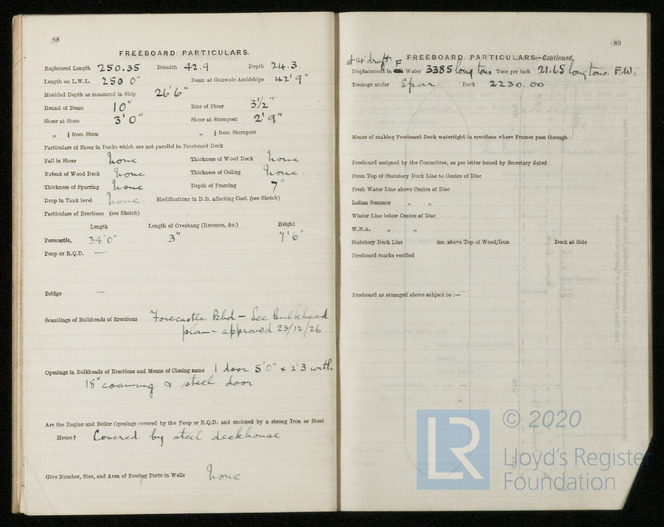 88
FREEBOARD PARTICULARS.
Registered Length 250.35 Breadth 42.9 Depth 24.3
Length on L.W.L. 250' 0" Beam at Gunwale Amidships 42' 9"
Moulded Depth as measured in Ship 26' 6"
Round of Beam 10" Rise of Floor 3½"
Sheer at Stem 3' 0" Sheer at Sternpost 2' 9"
" ⅛ from Stem " ⅛ from Sternpost
Particulars of Sheer in Decks which are not parallel to Freeboard Deck
Fall in Sheer none Thickness of Wood Deck none
Extent of Wood Deck none Thickness of Ceiling none
Thickness of Sparring none Depth of Framing 7"
Drop in Tank level none. Modifications in D.B. affecting Coef. (see Sketch)
Particulars of Erections (see Sketch)
Length Length of Overhang (Recesses, &c.) Height
Forecastle, 34' 0" 3" 7' 6"
Poop or R.Q.D. —
Bridge —
Scantlings of Bulkheads of Erections Forecastle Blhd – See Bulkhead
plan – approved 23/12/26
Openings in Bulkheads of Erections and Means of Closing same 1 door 5' 0" x 2' 3 with
18" coaming & steel door
Are the Engine and Boiler Openings covered by the Poop or R.Q.D. and enclosed by a strong Iron or Steel
House? Covered by steel deckhouse
Give Number, Size, and Area of Freeing Ports in Wells none
89
FREEBOARD PARTICULARS—Continued.
at 14' draft F
Displacement in Water 3385 long tons Tons per inch 21.65 long tons. F.W.
Tonnage under Spar Deck 2230.00
Means of making Freeboard Deck watertight in erections where Frames pass through
Freeboard assigned by the Committee, as per letter issued by Secretary dated
From Top of Statutory Deck Line to Centre of Disc
Fresh Water Line above Centre of Disc
Indian Summer " "
Winter Line below Centre of Disc
W.N.A. " "
Statutory Deck Line ins. above Top of Wood/Iron Deck at Side
Freeboard marks verified
Freeboard as arranged above subject to :—
LR
© 2020
Lloyd's Register
Foundation